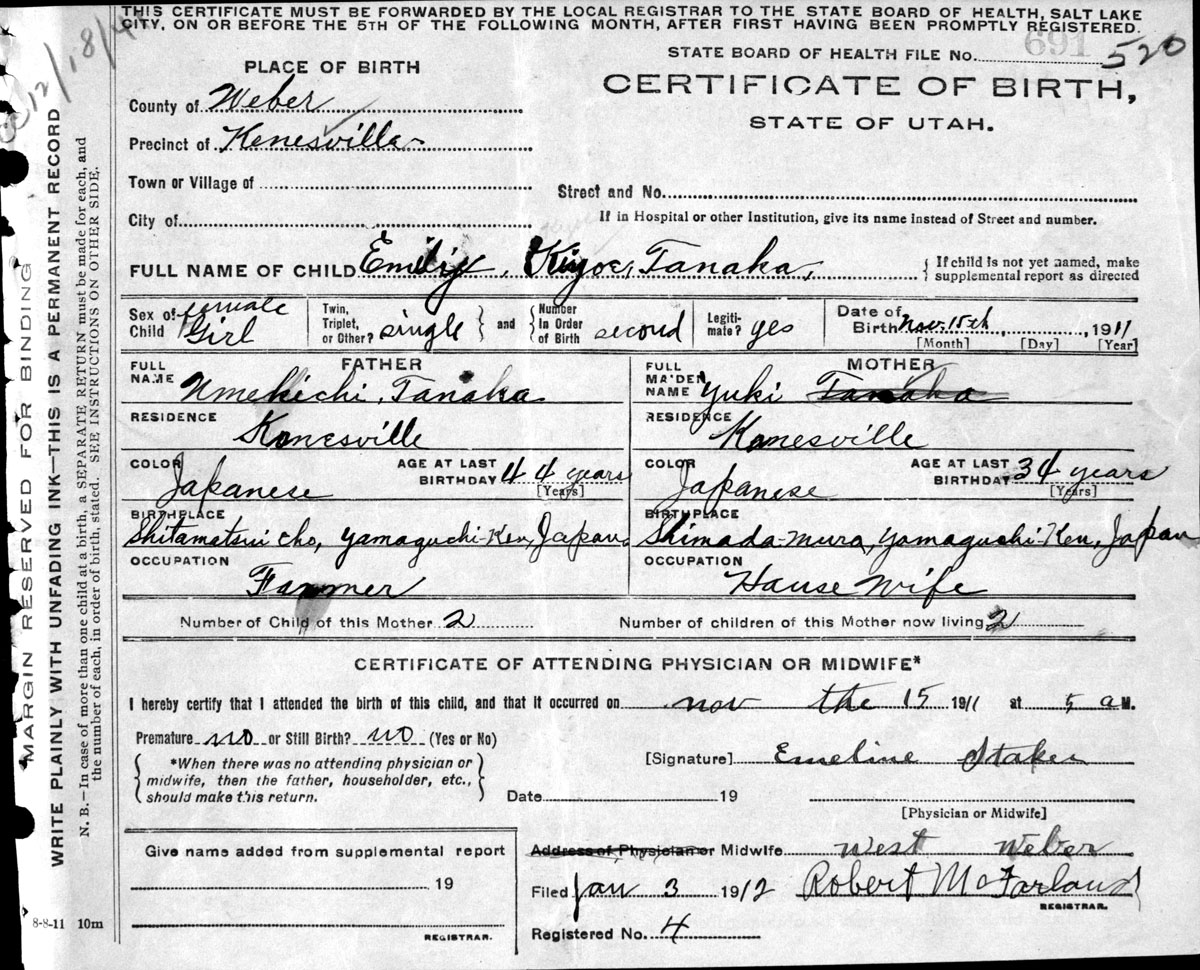 THIS CERTIFICATE MUST BE FORWARDED BY THE LOCAL REGISTRAR TO THE STATE BOARD OF HEALTH, SALT LAKE
CITY, ON OR BEFORE THE 5TH OF THE FOLLOWING MONTH, AFTER FIRST HAVING BEEN PROMPTLY REGISTERED.
691
STATE BOARD OF HEALTH FILE No. 520
PLACE OF BIRTH
CERTIFICATE OF BIRTH,
STATE OF UTAH.
County of Weber
Precinct of Kenesvilla
Town or Village of
Street and No.
City of
If in Hospital or other Institution, give its name instead of Street and number.
FULL NAME OF CHILD Emily, Kiyoe, Tanaka,
If child is not yet named, make
supplemental report as directed
Sex of Child female Girl
Twin, Triplet, or Other? single
and
Number In Order of Birth second
Legiti-mate? yes
Date of Birth Nov. 15th, 1911
[Month] [Day] [Year]
FATHER
FULL NAME Umekichi, Tanaka
MOTHER
FULL MAIDEN NAME Yuki Tanaka
RESIDENCE Kanesville
RESIDENCE Kanesville
COLOR Japanese
AGE AT LAST BIRTHDAY 44 years
[Years]
COLOR Japanese
AGE AT LAST BIRTHDAY 34 years
[Years]
BIRTHPLACE
Shitamatsui cho, Yamaguchi-Ken, Japan.
BIRTHPLACE
Shimada-mura, Yamaguchi-Ken, Japan
OCCUPATION
Farmer
OCCUPATION
Hause Wife
Number of Child of this Mother 2
Number of children of this Mother now living 2
CERTIFICATE OF ATTENDING PHYSICIAN OR MIDWIFE*
I hereby certify that I attended the birth of this child, and that it occurred on nov the 15 1911 at 5 a M.
Premature no or Still Birth? no (Yes or No)
*When there was no attending physician or
midwife, then the father, householder, etc.,
should make this return.
[Signature] Emeline Staker
Date 19
[Physician or Midwife]
Give name added from supplemental report
19
REGISTRAR.
Address of Physician or Midwife West Weber
Filed Jan 3 1912 Robert McFarland
REGISTRAR.
Registered No. 4
8-8-11 10m
MARGIN RESERVED FOR BINDING
WRITE PLAINLY WITH UNFADING INK—THIS IS A PERMANENT RECORD
N. B.—In case of more than one child at a birth, a SEPARATE RETURN must be made for each, and
the number of each, in order of birth, stated. SEE INSTRUCTIONS ON OTHER SIDE.